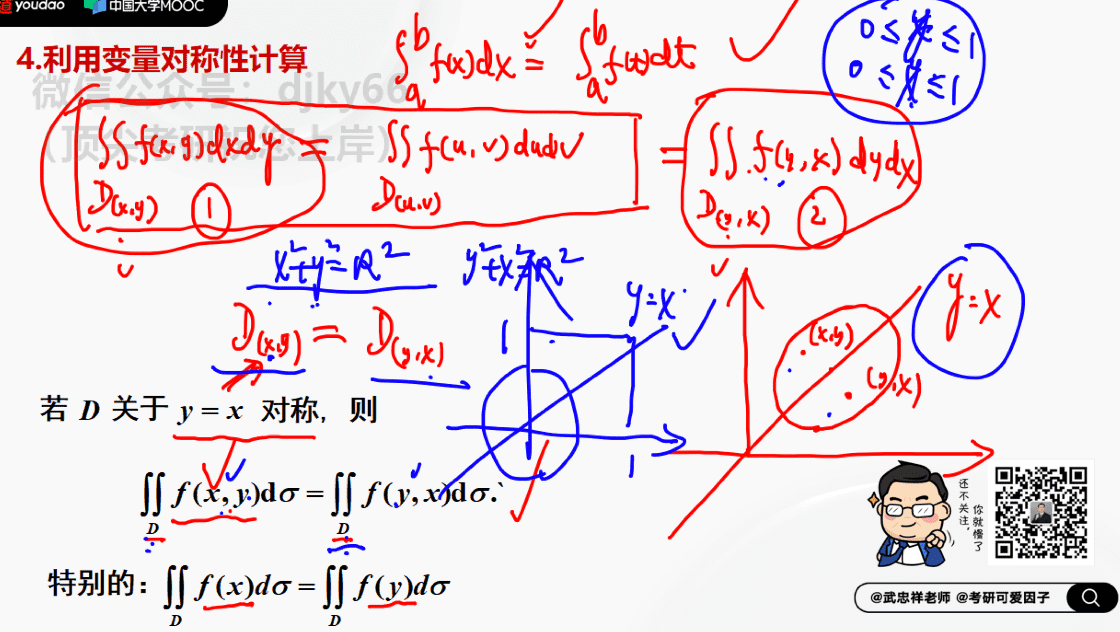 youdao 中国大学MOOC
4.利用变量对称性计算
微信公众号：djky66
（顶尖考研祝您上岸）
∫_a^b f(x)dx = ∫_a^b f(t)dt
0 ≤ x ≤ 1
0 ≤ y ≤ 1
∬_{D(x,y)} f(x,y)dxdy = ∬_{D(u,v)} f(u,v)dudv = ∬_{D(y,x)} f(y,x)dydx
① ②
x²+y²=R² y²+x²=R²
y=x
y=x
D(x,y) = D(y,x)
1
(x,y)
(y,x)
1
若 D 关于 y = x 对称，则
∬_D f(x,y)dσ = ∬_D f(y,x)dσ.
特别的：∬_D f(x)dσ = ∬_D f(y)dσ
还不关注，
你就慢了
@武忠祥老师 @考研可爱因子